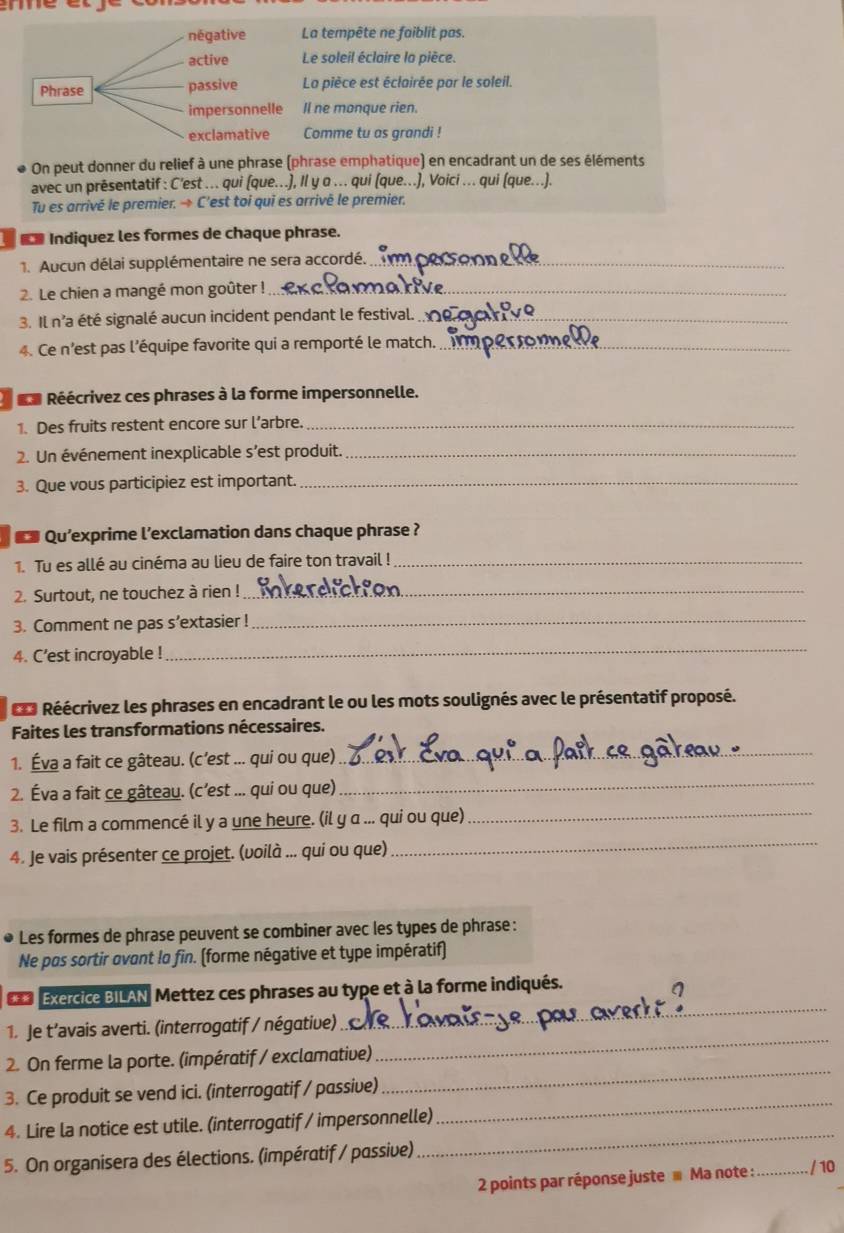 négative La tempête ne faiblit pas.
active Le soleil éclaire la pièce.
Phrase passive La pièce est éclairée par le soleil.
impersonnelle Il ne manque rien.
exclamative Comme tu as grandi !
• On peut donner du relief à une phrase (phrase emphatique) en encadrant un de ses éléments
avec un présentatif : C'est ... qui (que...), Il y a ... qui (que...), Voici ... qui (que...).
Tu es arrivé le premier. → C'est toi qui es arrivé le premier.
* Indiquez les formes de chaque phrase.
1. Aucun délai supplémentaire ne sera accordé. impersonnelle
2. Le chien a mangé mon goûter ! exclamative
3. Il n'a été signalé aucun incident pendant le festival. negative
4. Ce n'est pas l'équipe favorite qui a remporté le match. impersonnelle
* Réécrivez ces phrases à la forme impersonnelle.
1. Des fruits restent encore sur l'arbre.
2. Un événement inexplicable s'est produit.
3. Que vous participiez est important.
* Qu'exprime l'exclamation dans chaque phrase ?
1. Tu es allé au cinéma au lieu de faire ton travail !
2. Surtout, ne touchez à rien ! interdiction
3. Comment ne pas s'extasier !
4. C'est incroyable !
** Réécrivez les phrases en encadrant le ou les mots soulignés avec le présentatif proposé.
Faites les transformations nécessaires.
1. Éva a fait ce gâteau. (c'est ... qui ou que) C'est Éva qui a fait ce gâteau.
2. Éva a fait ce gâteau. (c'est ... qui ou que)
3. Le film a commencé il y a une heure. (il y a ... qui ou que)
4. Je vais présenter ce projet. (voilà ... qui ou que)
• Les formes de phrase peuvent se combiner avec les types de phrase :
Ne pas sortir avant la fin. (forme négative et type impératif)
** Exercice BILAN Mettez ces phrases au type et à la forme indiqués.
1. Je t'avais averti. (interrogatif / négative) t'avais-je pas averti ?
2. On ferme la porte. (impératif / exclamative)
3. Ce produit se vend ici. (interrogatif / passive)
4. Lire la notice est utile. (interrogatif / impersonnelle)
5. On organisera des élections. (impératif / passive)
2 points par réponse juste ■ Ma note : / 10